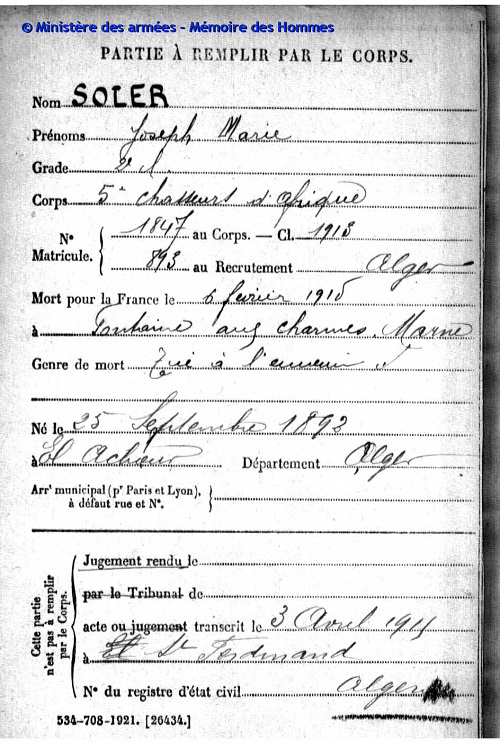 © Ministère des armées - Mémoire des Hommes
PARTIE À REMPLIR PAR LE CORPS.
Nom SOLER
Prénoms Joseph Marie
Grade 2e
Corps 5e chasseurs d'afrique
N° Matricule. { 1847 au Corps. — Cl. 1913
893 au Recrutement Alger
Mort pour la France le 6 février 1915
à Fontaine aux charmes. Marne
Genre de mort Tué à l'ennemi
Né le 25 Septembre 1892
à El Achour Département Alger
Arrt municipal (pr Paris et Lyon), à défaut rue et N°. }
Cette partie n'est pas à remplir par le Corps.
Jugement rendu le
par le Tribunal de
acte ou jugement transcrit le 3 Avril 1915
à St Ferdinand
N° du registre d'état civil Alger
534-708-1921. [26434.]